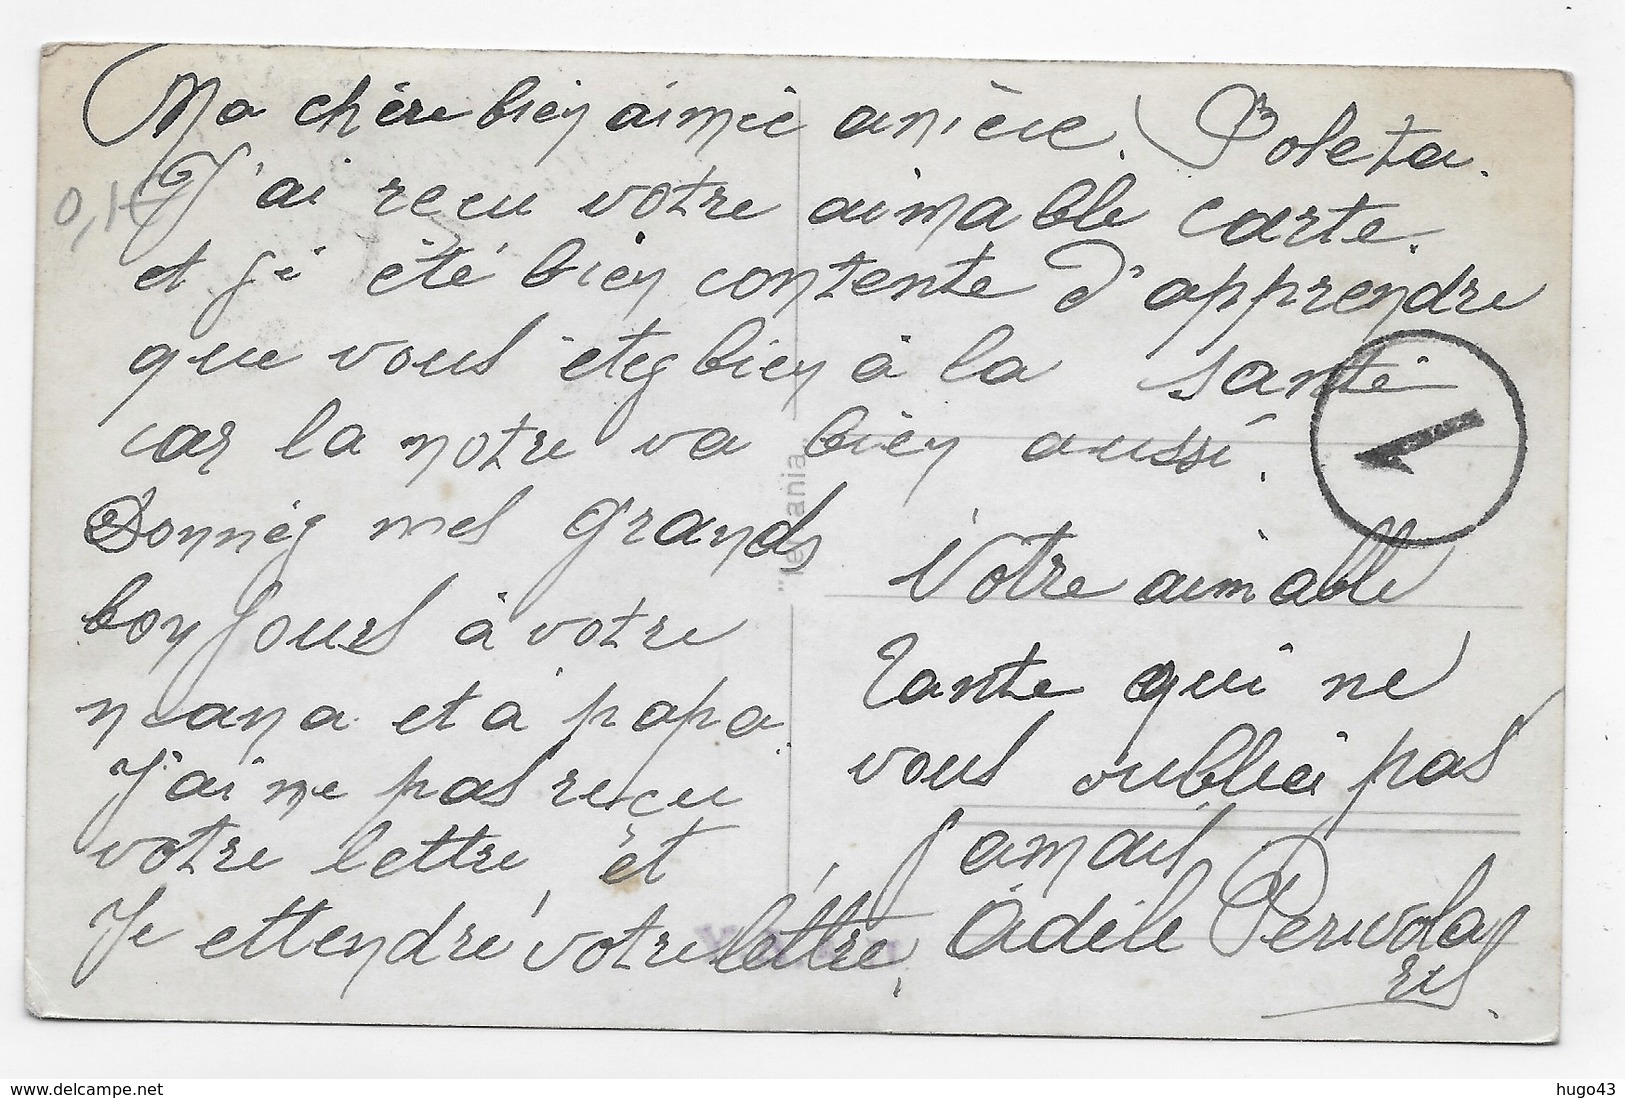 Ma chère bien aimée anièce. Poleta.
J'ai recu votre aimable carte.
et j'é été bien contente d'apprendre
que vous éteg bien à la santé
car la notre va bien aussi.
Donnég mes grands
bonjours à votre
mana et à papa.
J'ai ne pas recu
votre lettre, et
Je ettendré votre lettre,
Votre aimable
Tante qui ne
vous oubliéi pas
jamais
Adèle Perivola
res.
0,10
delcampe.net
hugo43